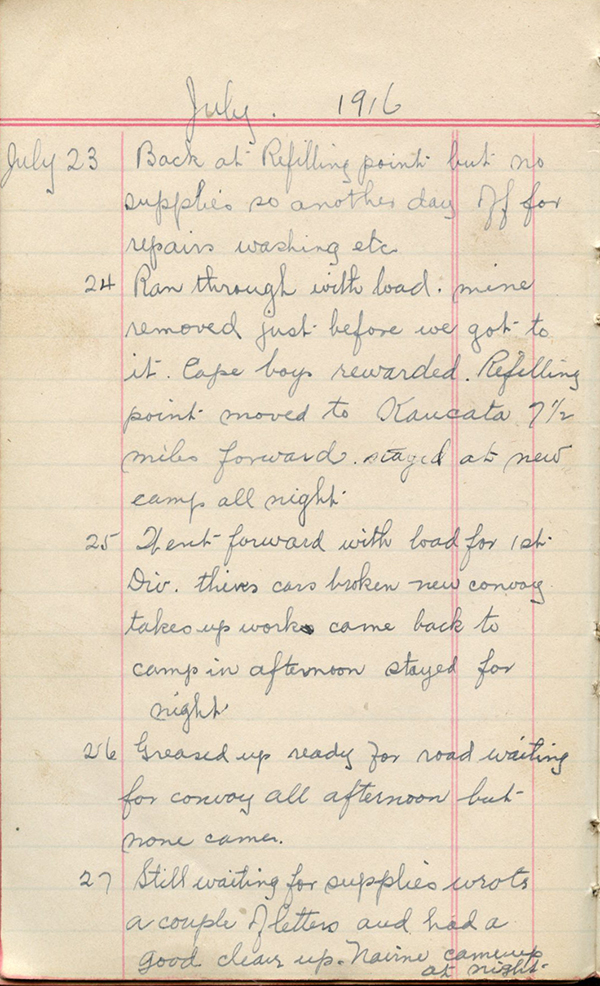 July. 1916
July 23 Back at Refilling point but no
supplies so another day off for
repairs washing etc
24 Ran through with load. mine
removed just before we got to
it. Cape boys rewarded. Refilling
point moved to Kaucata 7½
miles forward. stayed at new
camp all night.
25 Went forward with load for 1st
Div. cars broken new convoy
takes up work came back to
camp in afternoon stayed for
night
26 Greased up ready for road waiting
for convoy all afternoon but
none came.
27 Still waiting for supplies wrote
a couple of letters and had a
good clean up. Nairne came up
at night.